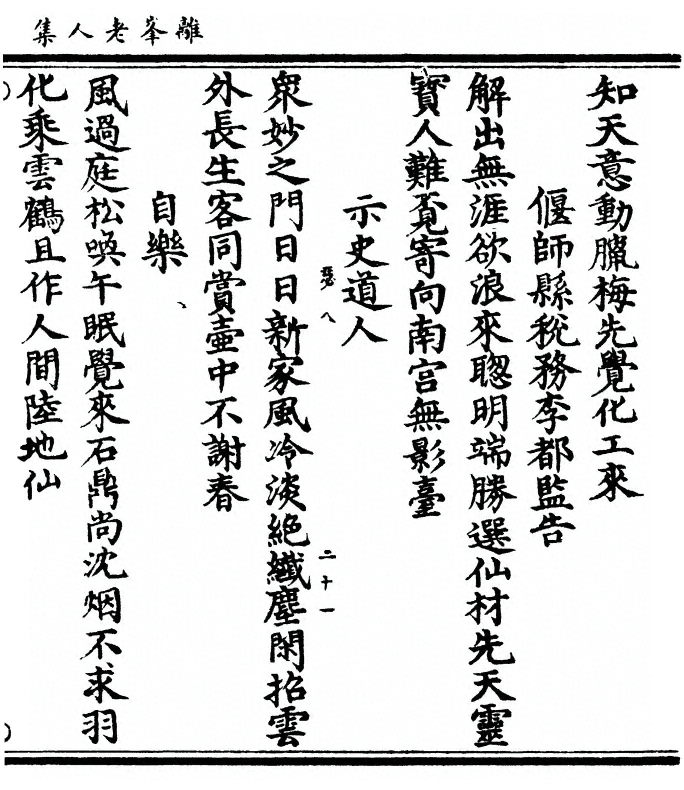 離峯老人集
知天意動臘梅先覺化工來
偃師縣稅務李都監告
解出無涯欲浪來聰明端勝選仙材先天靈
寶人難覔寄向南宮無影臺
示史道人
瑟八
二十一
衆妙之門日日新家風冷淡絕纖塵閑招雲
外長生客同賞壷中不謝春
自樂
風過庭松喚午眠覺來石鼎尚沈烟不求羽
化乘雲鶴且作人間陸地仙